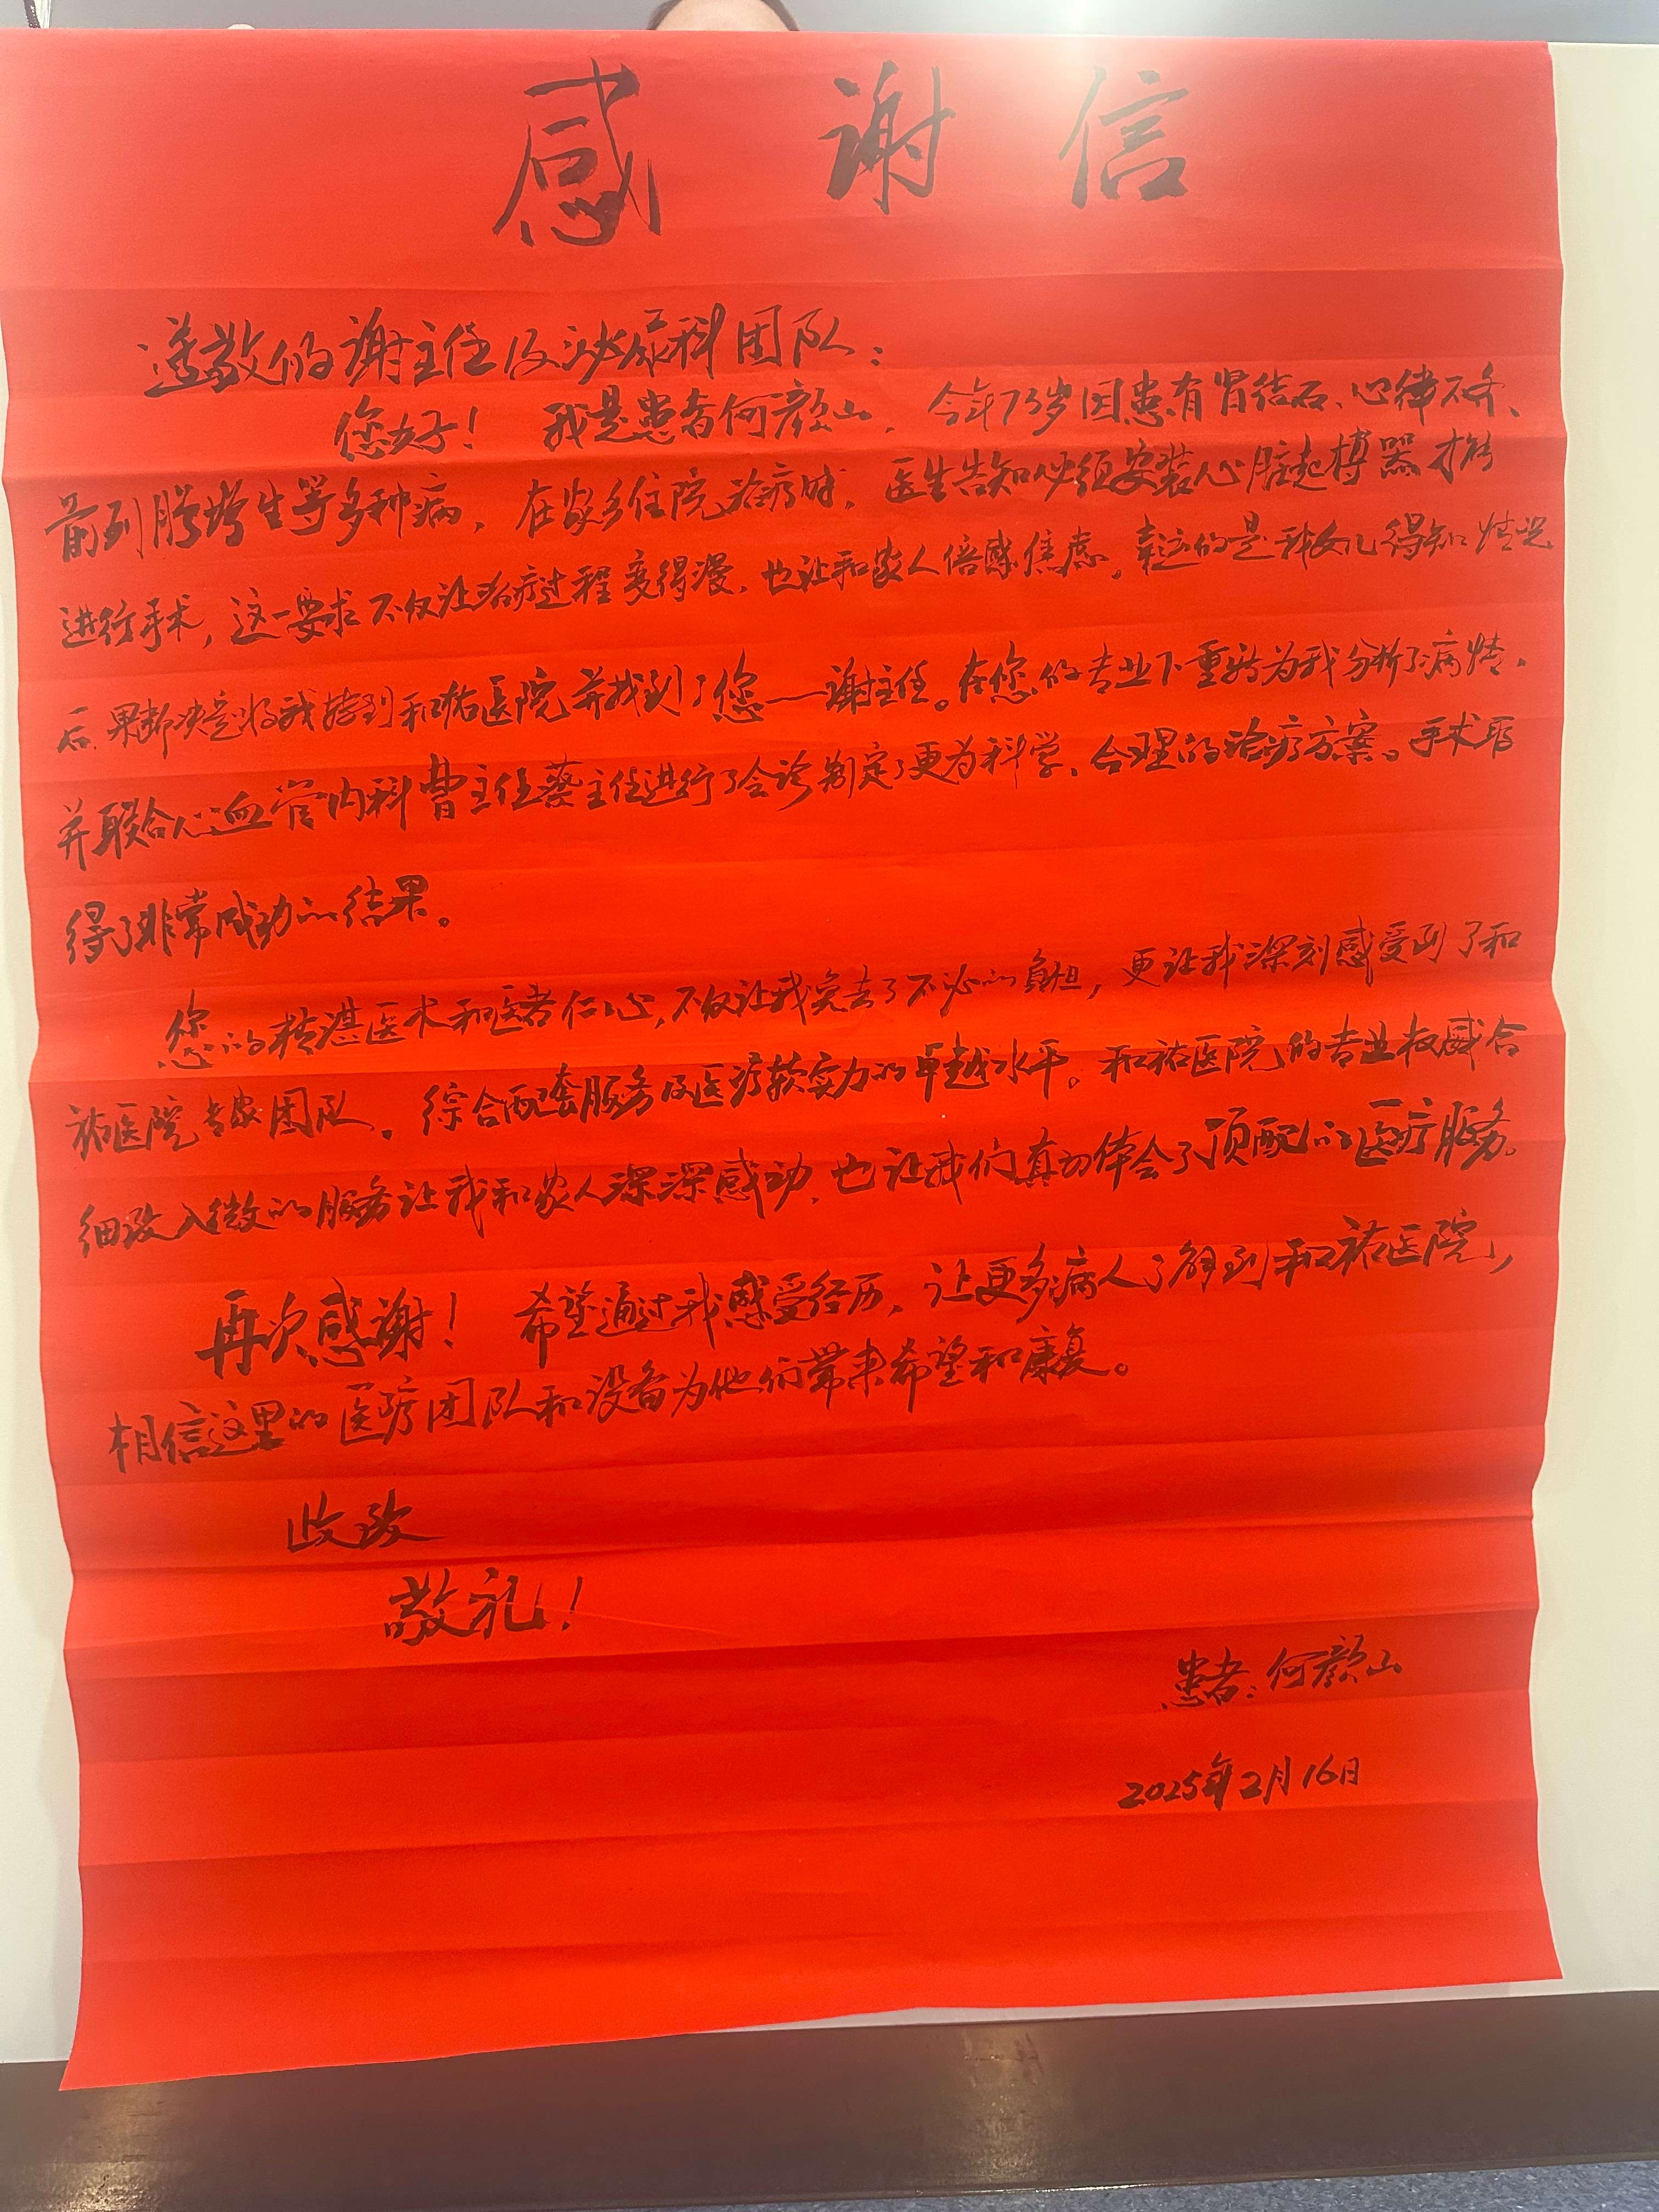 感谢信
尊敬的谢主任及泌尿科团队:
您好! 我是患者何颜山,今年73岁因患有肾结石、心律不齐、
前列腺增生等多种病,在家乡住院治疗时,医生告知必须安装心脏起搏器才能
进行手术,这一要求不仅让治疗过程变得漫,也让和家人倍感焦虑。幸运的是我女儿得知情况
后.果断决定将我转到和祐医院并找到了您——谢主任。在您的专业下重新为我分析了病情,
并联合心血管内科曹主任蔡主任进行了会诊制定了更为科学、合理的治疗方案。手术取
得了非常成功的结果。
您的精湛医术和医者仁心,不仅让我免去了不必的负担,更让我深刻感受到了和
祐医院专家团队、综合配套服务及医疗软实力的卓越水平。和祐医院的专业权威合
细致入微的服务让我和家人深深感动,也让我们真切体会了顶配的医疗服务。
再次感谢! 希望通过我感受经历,让更多病人了解到和祐医院,
相信这里的医疗团队和设备为他们带来希望和康复。
此致
敬礼!
患者:何颜山
2025年2月16日